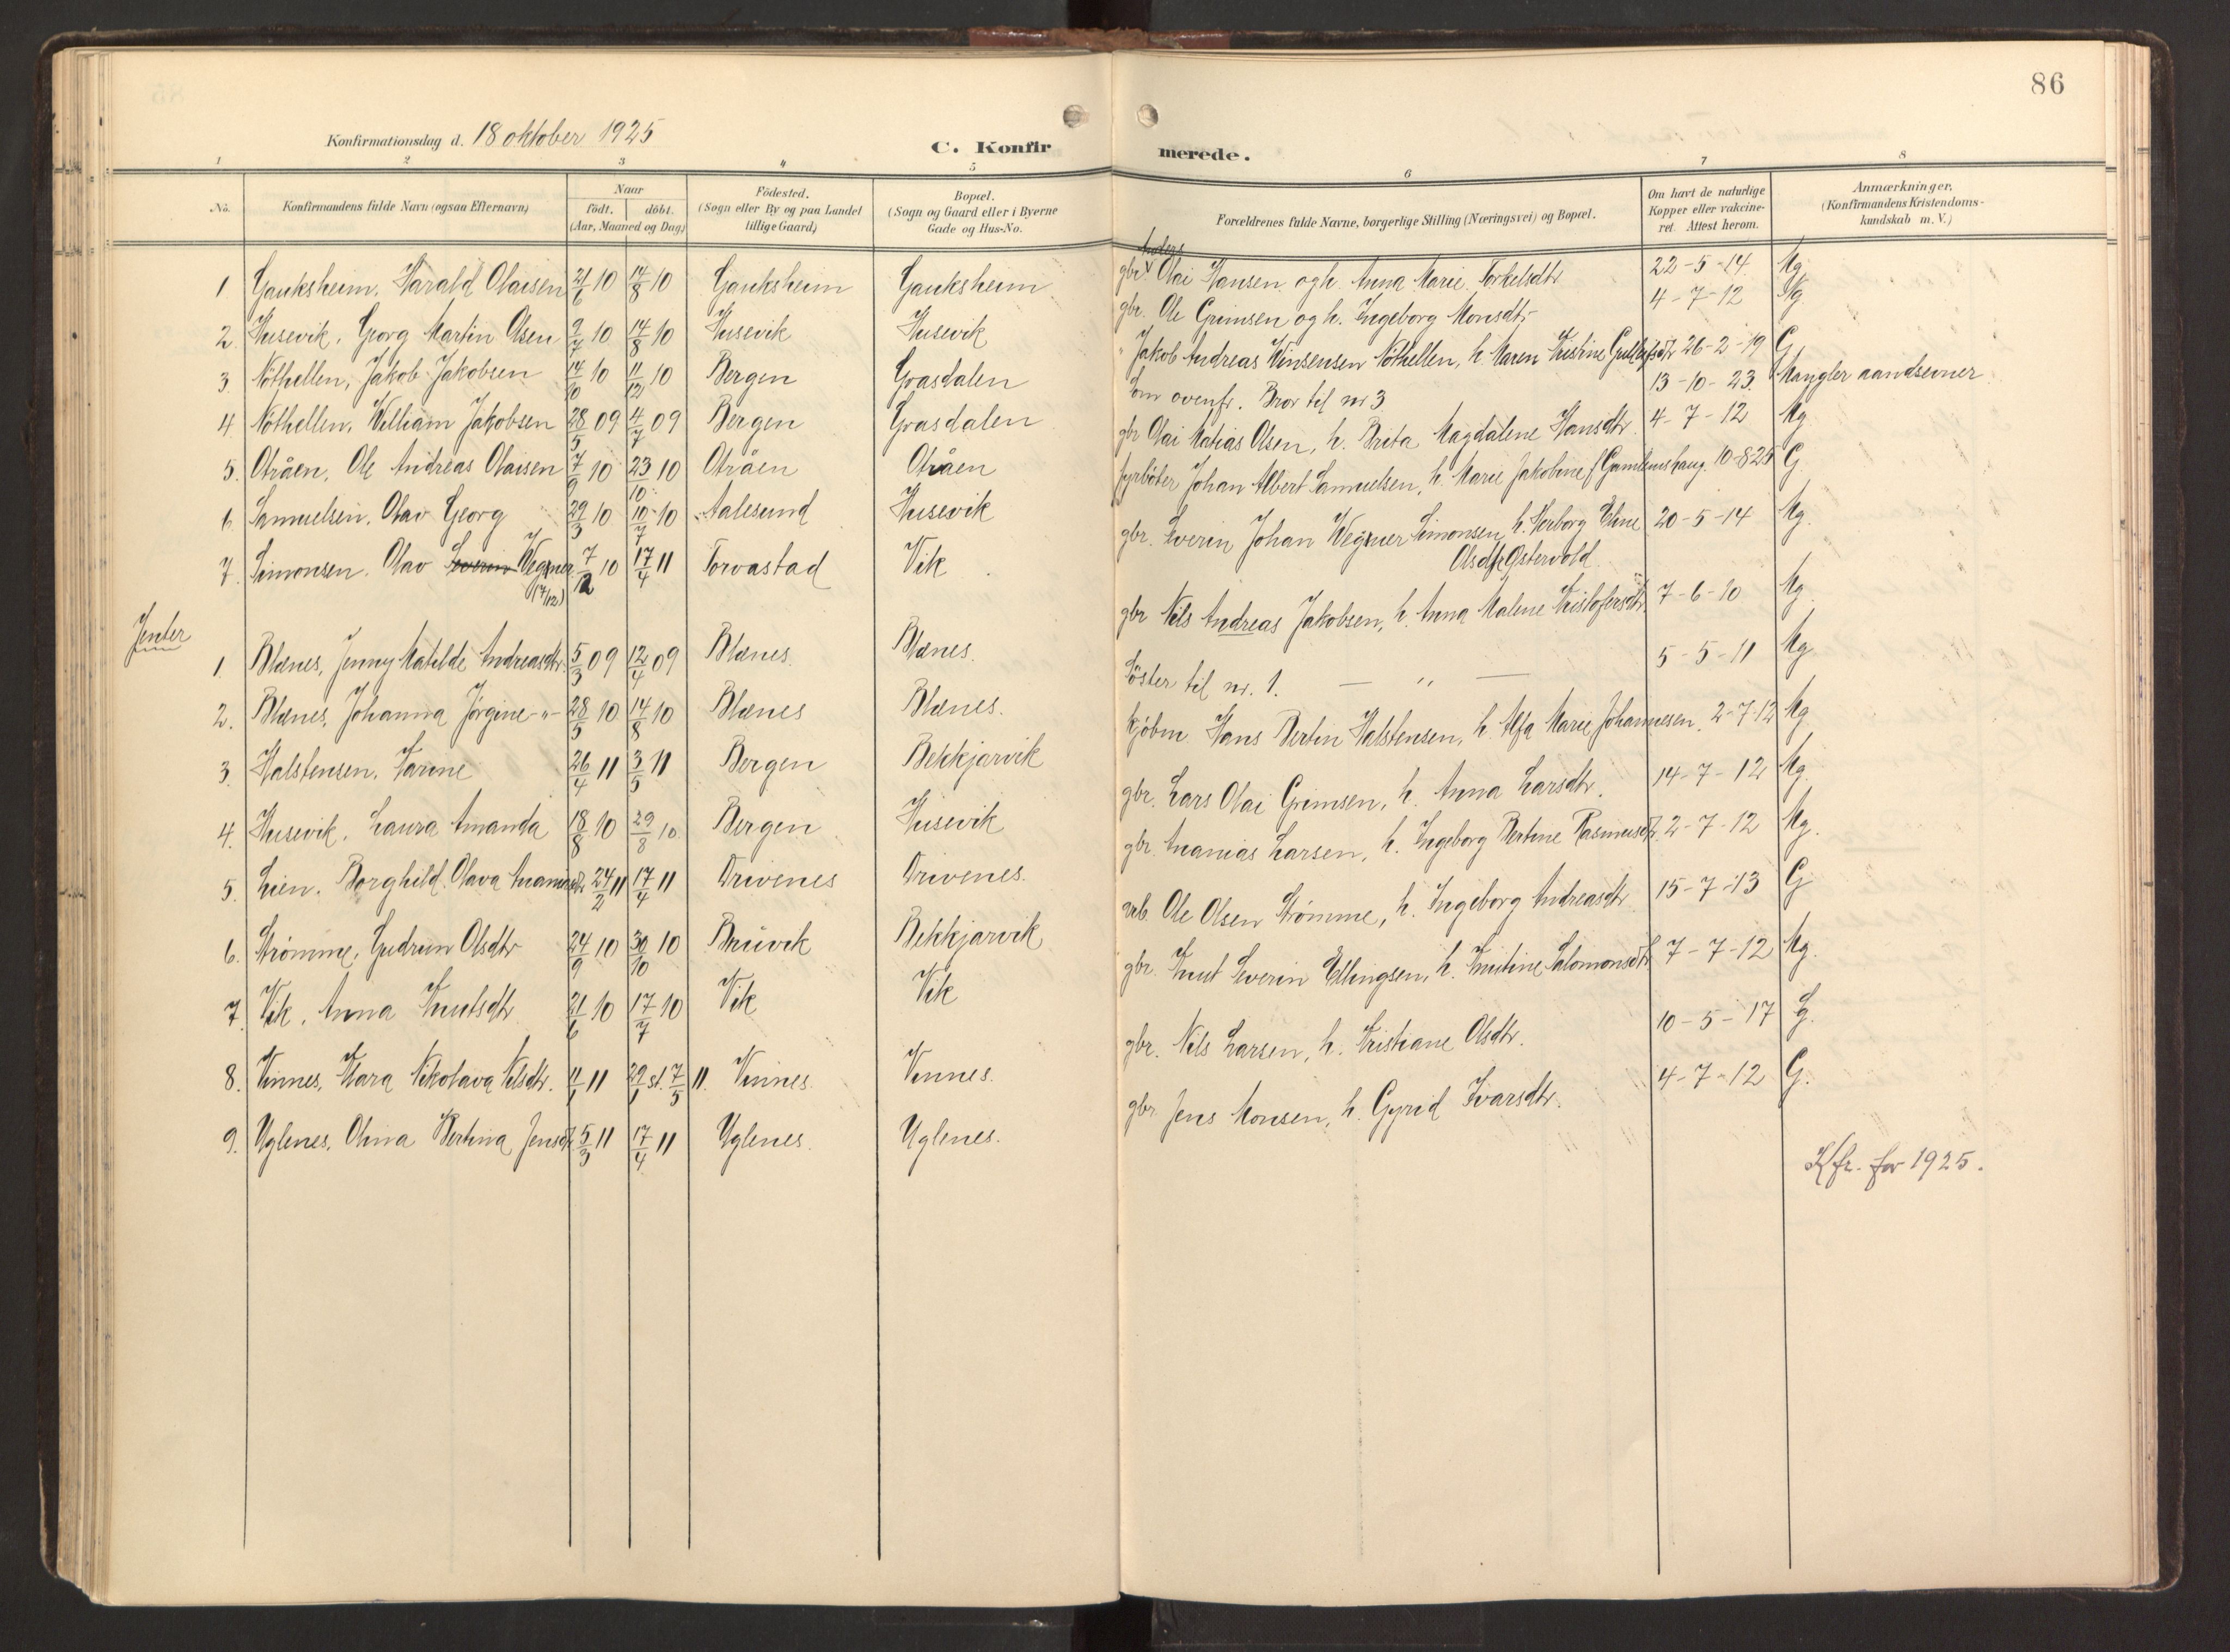 86
Konfirmationsdag d. 18 oktober 1925
C. Konfirmerede.
1 2 3 4 5 6 7 8
No. Konfirmandens fulde Navn (ogsaa Efternavn) Naar födt. döbt. (Aar, Maaned og Dag) Födested. (Sogn eller By og paa Landet tillige Gaard) Bopæl. (Sogn og Gaard eller i Byerne Gade og Hus-No. Forældrenes fulde Navne, borgerlige Stilling (Næringsvei) og Bopæl. Om havt de naturlige Kopper eller vakcineret. Attest herom. Anmærkninger, (Konfirmandens Kristendomskundskab m. V.)
1 Gauksheim, Harald Olaisen 21/6 10 14/8 10 Gauksheim Gauksheim gbr. Anders Olai Hansen og h. Anna Marie Torkelsdtr 22-5-14 Mg.
2. Husevik, Georg Martin Olsen 9/7 10 14/8 10 Husevik Husevik gbr. Ole Grimsen og h. Ingeborg Monsdtr 4-7-12 Ng.
3 Nöthellen, Jakob Jakobsen 14/10 10 11/12 10 Bergen Grasdalen " Jakob Andreas Vinsensen Nöthellen, h. Maren Kristine 26-2-19 G.
4. Nöthellen, William Jakobsen 28/5 09 4/7 09 Bergen Grasdalen Som ovenfr. Bror til nr 3 13-10-23. Mangler aandsevner
5. Otråen, Ole Andreas Olaisen 7/9 10 23/10 10 Otråen Otråen gbr Olai Matias Olsen, h. Brita Magdalene Hansdtr. 4-7-12 Mg
6. Samuelsen, Olav Georg 29/3 10 10/7 10 Aalesund Husevik fyrböter Johan Albert Samuelsen, h. Marie Jakobine f. Gamlemshaug. 10-8-25 G.
7. Simonsen. Olav Severin Wegner (7/12) 7/12 10 17/4 11 Torvastad Vik gbr. Sverin Johan Wegner Simonsen, h. Herborg Eline Olsdtr Østervold 20-5-14 Mg.
Jenter
1. Blænes, Jenny Matilde Andreasdtr. 5/3 09 12/4 09 Blænes. Blænes. gbr Nils Andreas Jakobsen, h. Anna Malene Kristofersdtr 7-6-10 Mg
2. Blænes, Johanna Jørgine -"- 28/5 10 14/8 10 Blænes Blænes. Söster til nr. 1. — " — 5-5-11 Mg
3. Halstensen, Karine 26/4 11 3/5 11 Bergen Bekkjarvik kjöbm. Hans Bertin Halstensen, h. Alfa Marie Johannesen. 2-7-12 Mg
4. Husevik, Laura Amanda 18/8 10 29/8 10. Bergen Husevik gbr. Lars Olai Grimsen, h. Anna Larsdtr. 14-7-12 Mg.
5. Lien. Borghild Olava Ananiasdtr 24/2 11 17/4 11 Drivenes Drivenes. gbr. Ananias Larsen, h. Ingeborg Bertine Rasmusdtr. 2-7-12 Mg.
6. Strömme, Gudrun Olsdtr 24/9 10 30/10 10 Bruvik Bekkjarvik arb. Ole Olsen Strømme, h. Ingeborg Andreasdtr 15-7-13 G
7. Vik, Anna Knutsdtr 21/6 10 17/7 10 Vik Vik gbr. Knut Severin Ellingsen, h. Kristine Salomonsdtr 7-7-12 Mg.
8. Vinnes, Klara Nikolava Nilsdtr. 11/1 11 29/1 st. 7/5 11. Vinnes. Vinnes. gbr. Nils Larsen, h. Kristiane Olsdtr. 10-5-17 G.
9. Uglenes, Olina Bertina Jensdtr 5/3 11 17/4 11 Uglenes Uglenes. gbr. Jens Monsen, h. Gyrid Ivarsdtr. 4-7-12 G.
Kfr. for 1925.